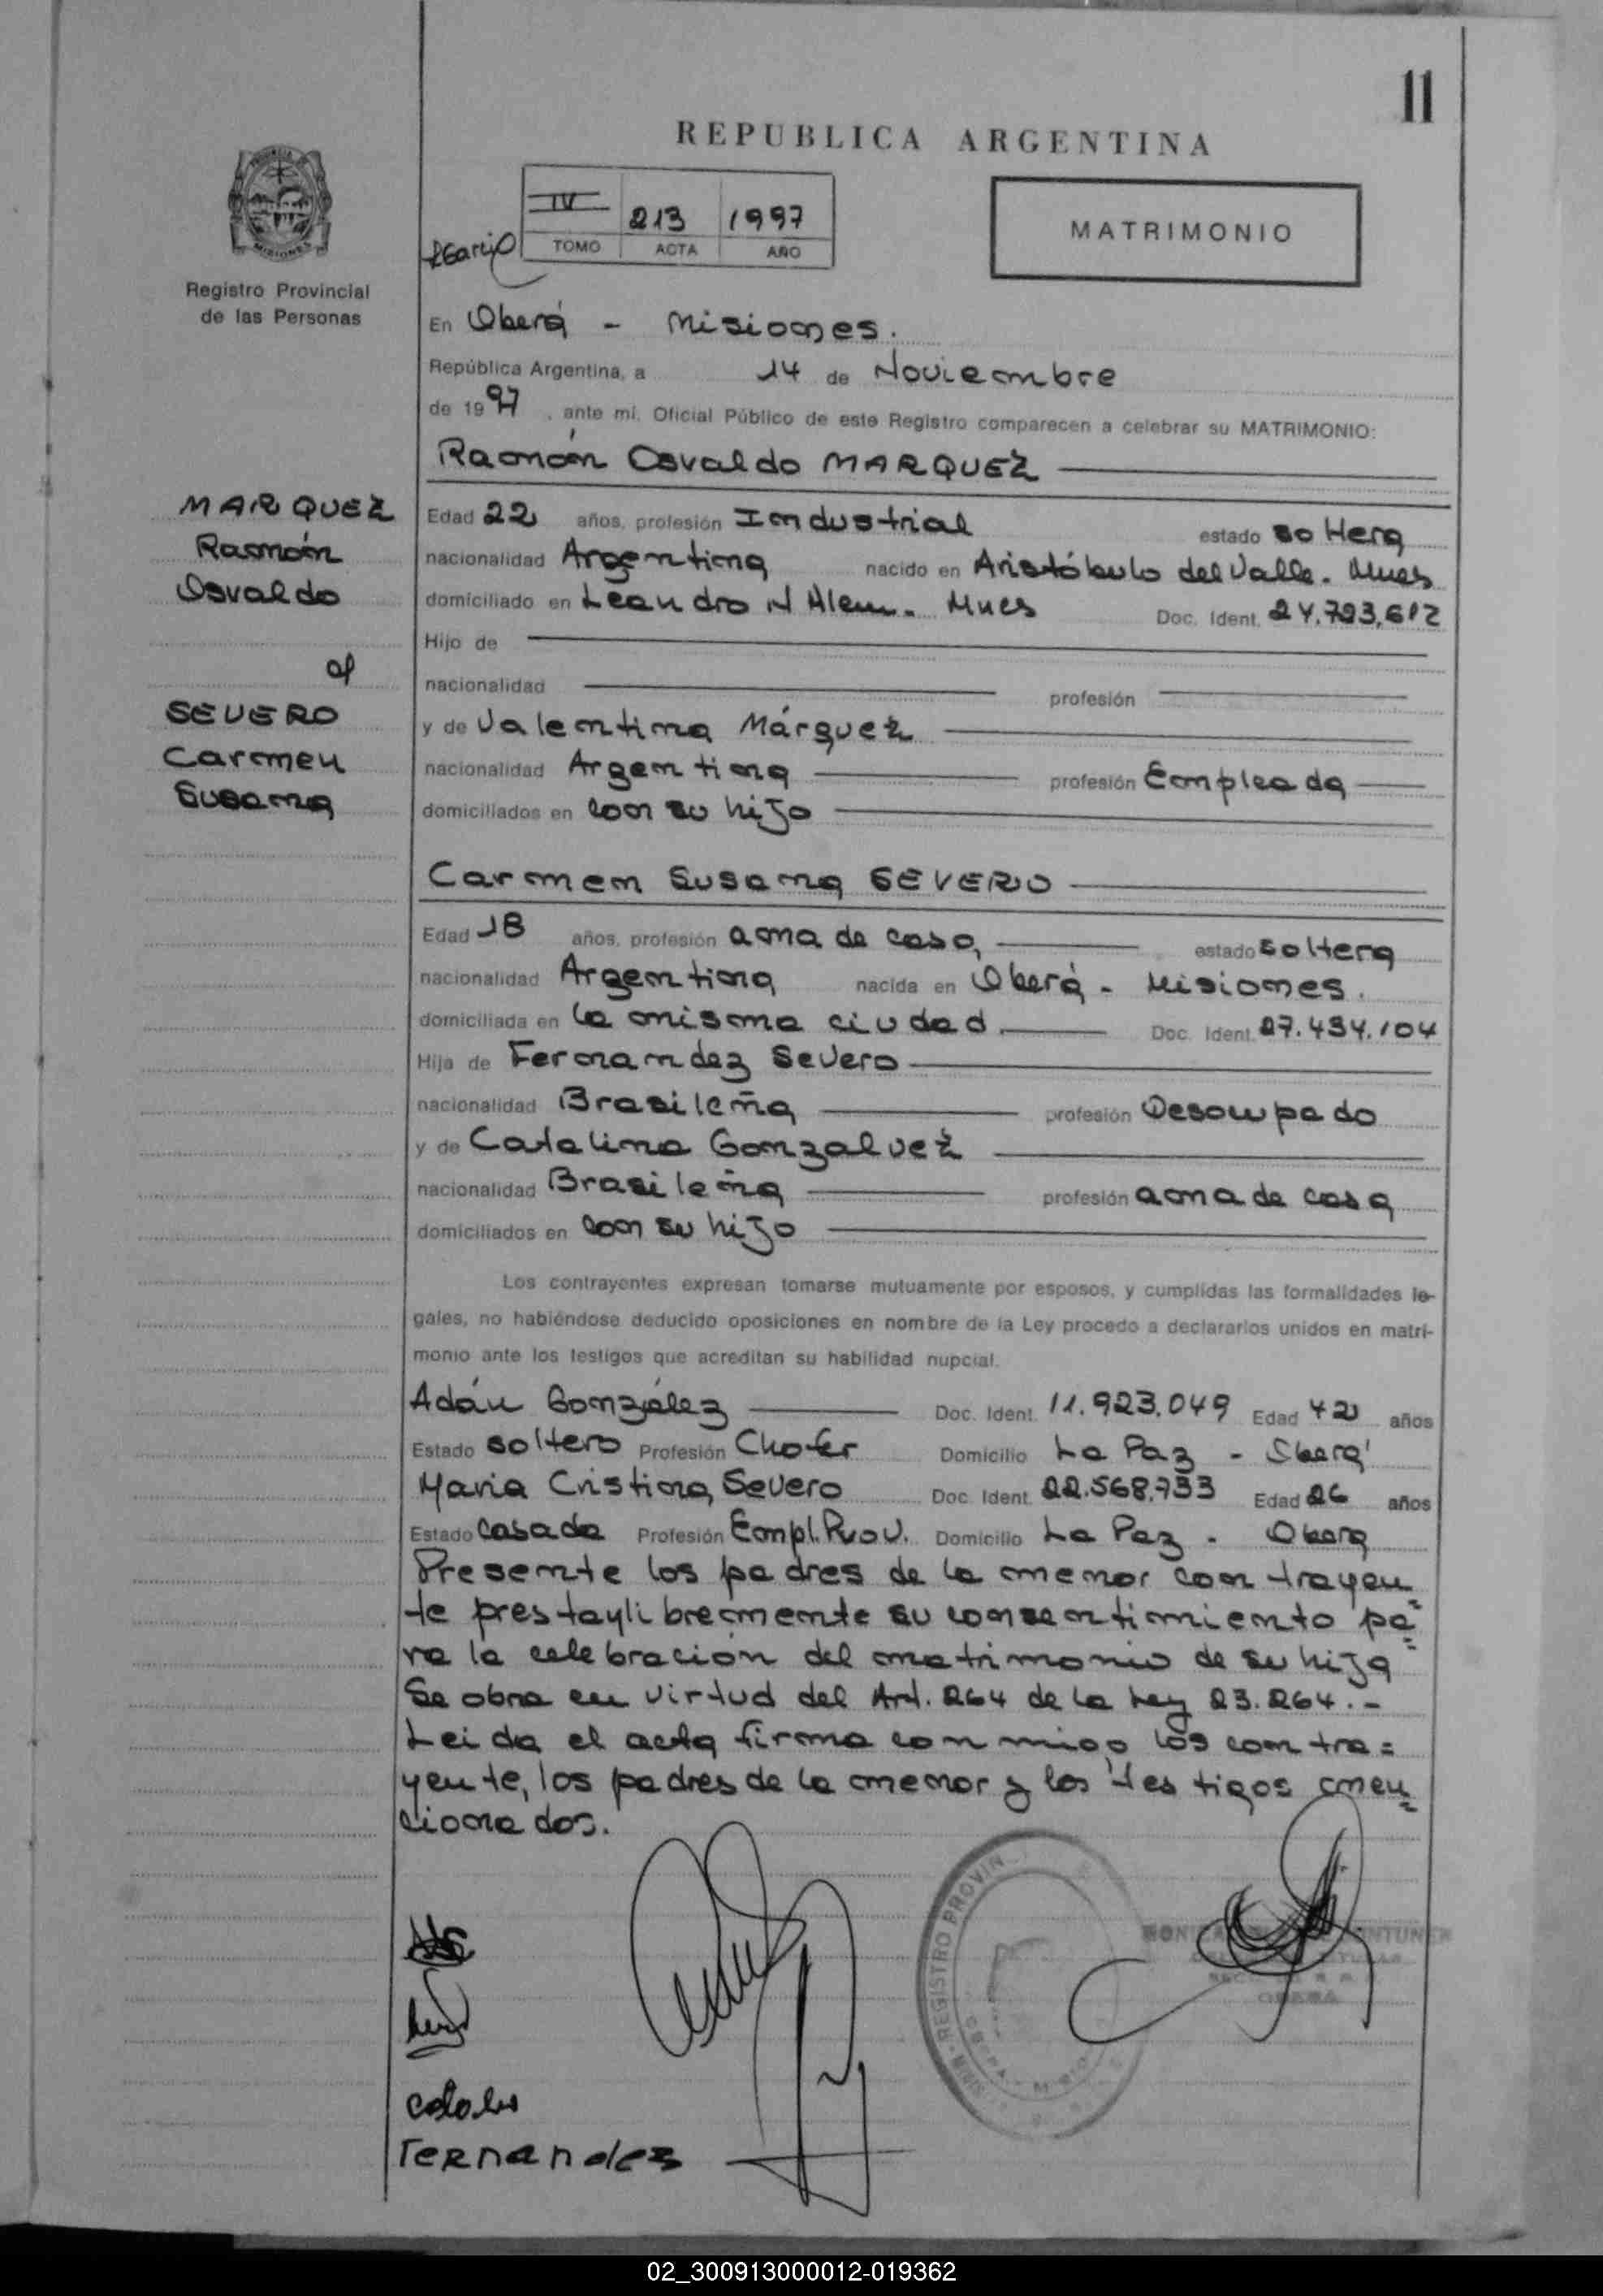 11
REPUBLICA ARGENTINA
IV 213 1997
TOMO ACTA AÑO
MATRIMONIO
MISIONES
Registro Provincial
de las Personas
En Oberá - Misiones.
República Argentina, a 14 de Noviembre
de 1997, ante mí, Oficial Público de este Registro comparecen a celebrar su MATRIMONIO:
Ramón Osvaldo MARQUEZ
MARQUEZ
Ramón
Osvaldo
SEVERO
Carmen
Susana
Edad 22 años, profesión Industrial estado soltera
nacionalidad Argentina nacido en Aristóbulo del Valle. Mnes
domiciliado en Leandro N Alem. Mnes Doc. Ident. 24.793.612
Hijo de
nacionalidad profesión
y de Valentina Márquez
nacionalidad Argentina profesión Empleada
domiciliados en con su hijo
Carmen Susana SEVERO
Edad 18 años, profesión ama de casa, estado soltera
nacionalidad Argentina nacida en Oberá - Misiones.
domiciliada en la misma ciudad. Doc. Ident. 27.434.104
Hija de Fernandez Severo
nacionalidad Brasileña profesión Desocupado
y de Catalina Gonzalvez
nacionalidad Brasileña profesión ama de casa
domiciliados en con su hijo
Los contrayentes expresan tomarse mutuamente por esposos, y cumplidas las formalidades le-
gales, no habiéndose deducido oposiciones en nombre de la Ley procedo a declararlos unidos en matri-
monio ante los testigos que acreditan su habilidad nupcial.
Adán González Doc. Ident. 11.923.049 Edad 42 años
Estado soltero Profesión Chofer Domicilio La Paz - Oberá
Maria Cristina Severo Doc. Ident. 22.568.733 Edad 26 años
Estado casada Profesión Empl. Prov. Domicilio La Paz - Obera
Presente los padres de la menor contrayen=
te prestaylibremente su consentimiento pa=
ra la celebración del matrimonio de su hija
Se obra en virtud del Art. 264 de la Ley 23.264.-
Leida el acta firma conmigo los contra=
yente, los padres de la menor y los testigos men=
cionados.
REGISTRO PROVIN
OBERA
Fernandez
02_300913000012-019362